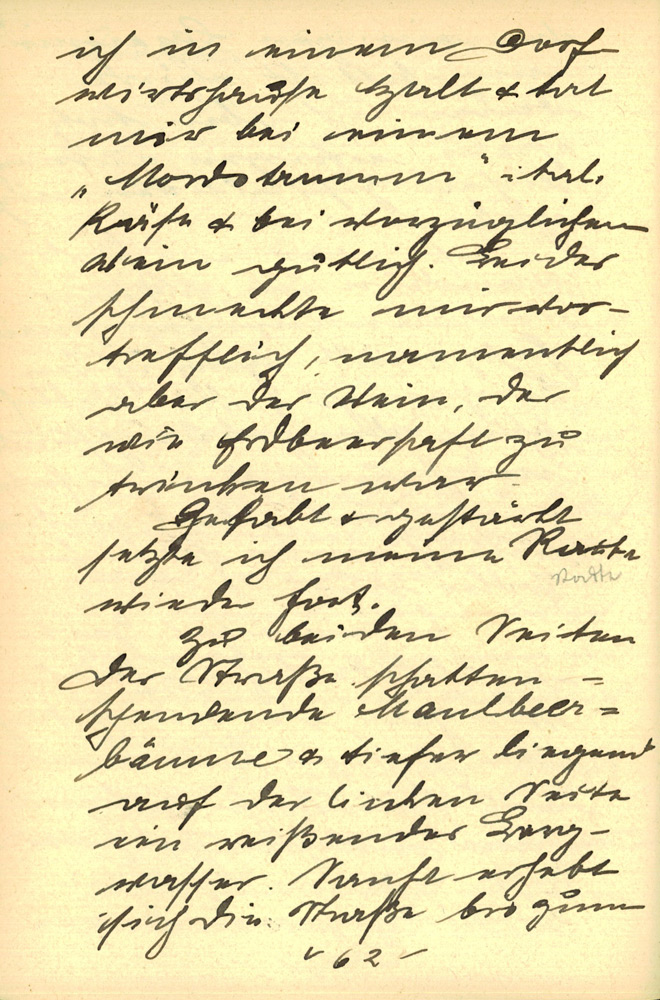 ich in einem Dorf-
wirtshause halt & tat
mir bei einem
„Mordstrumm" ital.
Käse & bei vorzüglichem
Wein gütlich. Beides
schmeckte mir vor-
trefflich, namentlich
aber der Wein, der
wie Erdbeersaft zu
trinken war.
Gelabt & gestärkt
setzte ich meine
wieder fort.
Zu beiden Seiten
der Straße schatten =
spendende Maulbeer =
bäume & tiefer liegend
auf der linken Seite
ein reißendes Berg-
wasser. Sanft erhebt
sich die Straße bis zum
- 62 -